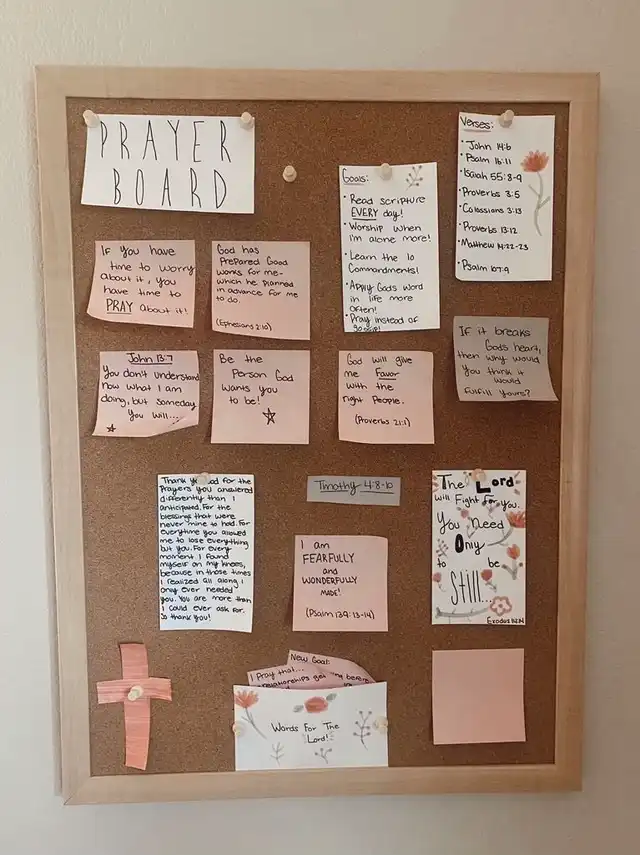 PRAYER
BOARD
Goals:
• Read scripture
EVERY day!
• Worship when
I'm alone more!
• Learn the 10
Commandments!
• Apply Gods word
in life more
often!
• Pray instead of
gossip!
Verses:
• John 14:6
• Psalm 16:11
• Isaiah 55:8-9
• Proverbs 3:5
• Colossians 3:13
• Proverbs 13:12
• Matthew 14:22-23
• Psalm 107:9
If you have
time to worry
about it, you
have time to
PRAY about it!
God has
Prepared Good
works for me-
which he planned
in advance for me
to do.
(Ephesians 2:10)
John 13:7
You don't understand
now what I am
doing, but someday
you will...
Be the
Person God
wants you
to be!
God will give
me Favor
with the
right People.
(Proverbs 21:1)
If it breaks
Gods heart,
then why would
you think it
would
fulfill yours?
Thank God for the
Prayers you answered
differently than I
anticipated. For the
blessings that were
never mine to hold. For
everytime you allowed
me to lose everything
but you. For every
moment I found
myself on my knees,
because in those times
I realized all along I
only ever needed
you. You are more than
I could ever ask for.
So thank you!
Timothy 4:8-10
I am
FEARFULLY
and
WONDERFULLY
MADE!
(Psalm 139:13-14)
The Lord
will Fight for you.
You Need
Only
to be
Still...
Exodus 14:14
New Goal:
I Pray that...
before
Words For The
Lord!